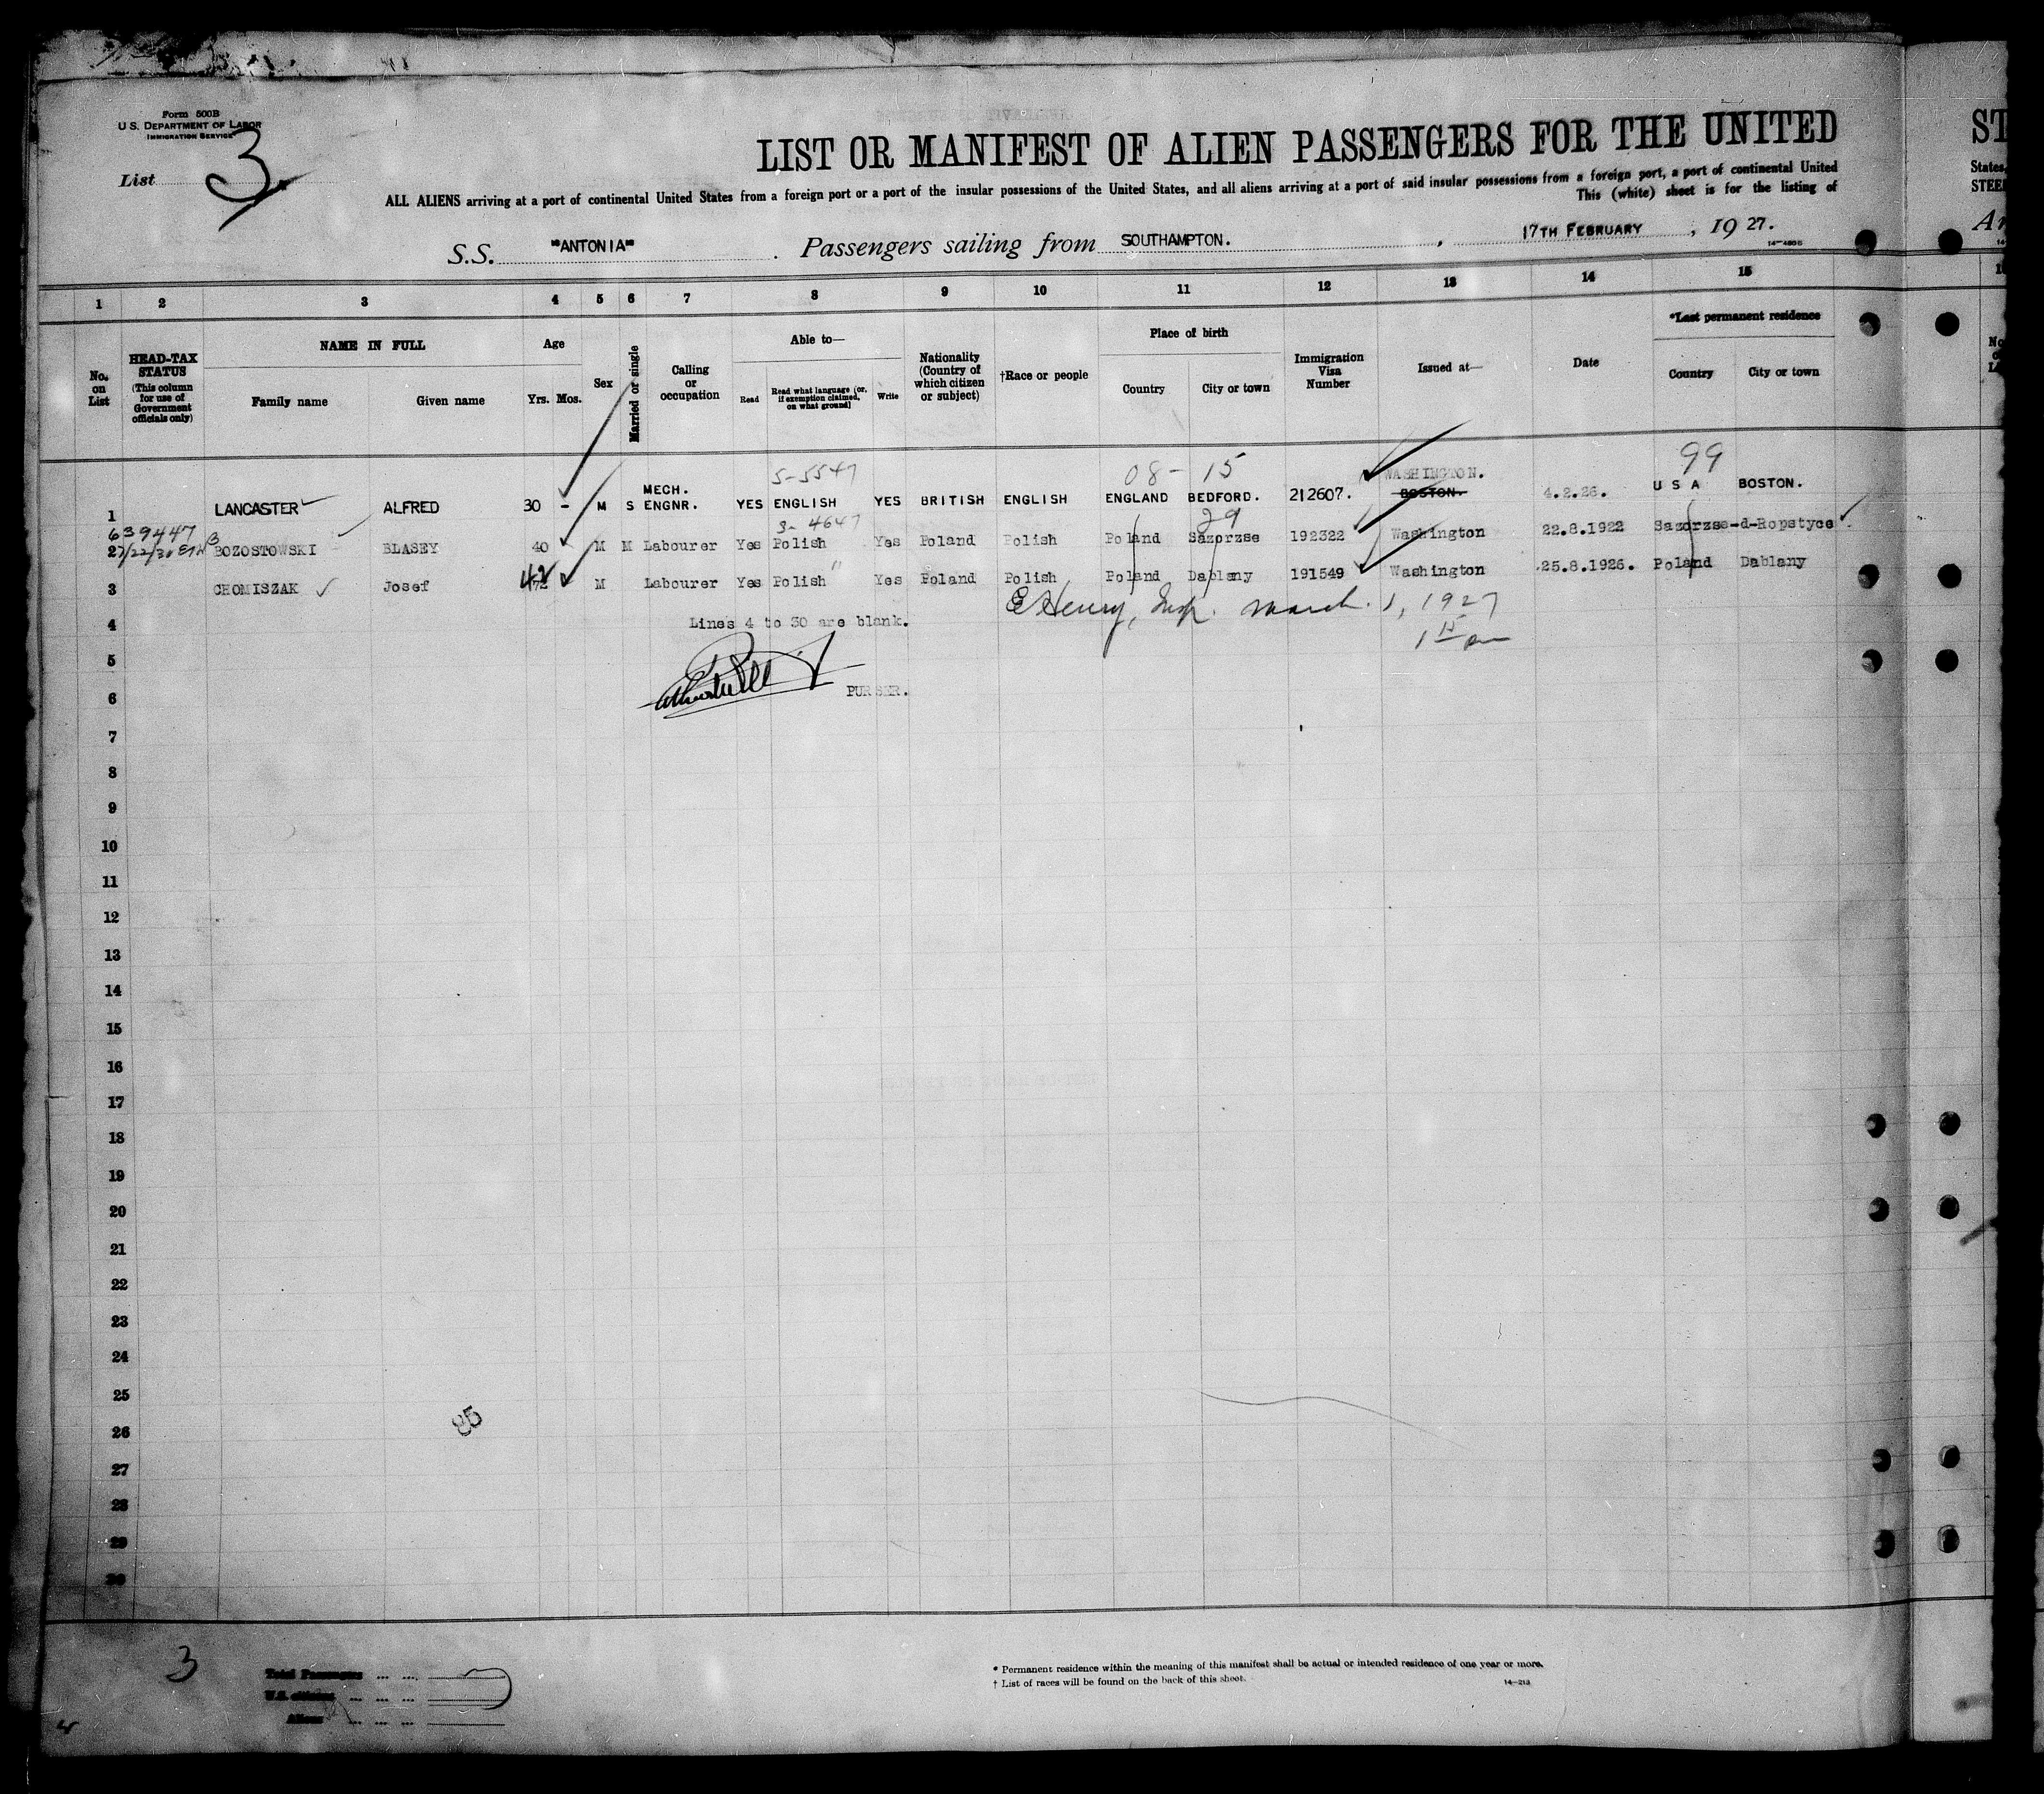 Form 500B
U.S. DEPARTMENT OF LABOR
IMMIGRATION SERVICE
List 3
LIST OR MANIFEST OF ALIEN PASSENGERS FOR THE UNITED
ALL ALIENS arriving at a port of continental United States from a foreign port or a port of the insular possessions of the United States, and all aliens arriving at a port of said insular possessions from a foreign port, a port of continental United
This (white) sheet is for the listing of
S.S. "ANTONIA" . Passengers sailing from SOUTHAMPTON. , 17TH FEBRUARY , 19 27.
14-4805
ST
States,
STEE
Ar
1 2 3 4 5 6 7 8 9 10 11 12 13 14 15
No. on List
HEAD-TAX STATUS (This column for use of Government officials only)
NAME IN FULL
Family name Given name
Age
Yrs. Mos.
Sex
Married or single
Calling or occupation
Able to—
Read Read what language (or, if exemption claimed, on what ground) Write
Nationality (Country of which citizen or subject)
†Race or people
Place of birth
Country City or town
Immigration Visa Number
Issued at—
Date
*Last permanent residence
Country City or town
5-5547 08- 15 WASHINGTON. 99
1 LANCASTER ALFRED 30 - M S MECH. ENGNR. YES ENGLISH YES BRITISH ENGLISH ENGLAND BEDFORD. 212607. BOSTON. 4.2.26. U S A BOSTON.
639447 3-4647 29
2 BOZOSTOWSKI BLASEY 40 M M Labourer Yes Polish Yes Poland Polish Poland Sazorzse 192322 Washington 22.8.1922 Sazorzse-d-Ropstyce
3 CHOMISZAK Josef 42 M Labourer Yes Polish " Yes Poland Polish Poland Dablany 191549 Washington 25.8.1926. Poland Dablany
E Henry, Insp. March 1, 1927
4 Lines 4 to 30 are blank.
1 15 pm
5
6 PURSER.
7
8
9
10
11
12
13
14
15
16
17
18
19
20
21
22
23
24
25
85
26
27
28
29
30
3
Total Passengers ... ...
U.S. citizens ... ... ...
Aliens ... ... ...
* Permanent residence within the meaning of this manifest shall be actual or intended residence of one year or more.
† List of races will be found on the back of this sheet.
14-213